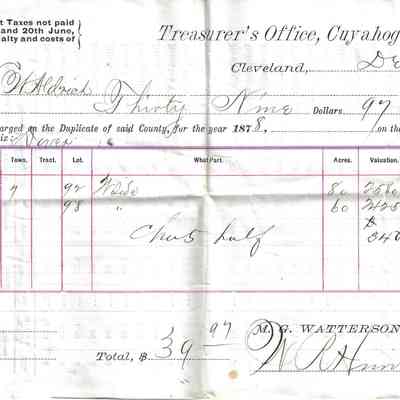 t Taxes not paid
and 20th June,
alty and costs of
Treasurer's Office, Cuyahog
Cleveland, De
W Aldrich
Thirty Nine Dollars 97
arged on the Duplicate of said County, for the year 1878, on the
iz: Dover
Town. Tract. Lot. What Part. Acres. Valuation.
7 92 W side 80 2580
98 " 60 2425
Chas half
346
M. G. WATTERSON
Total, $ 39 97
W R